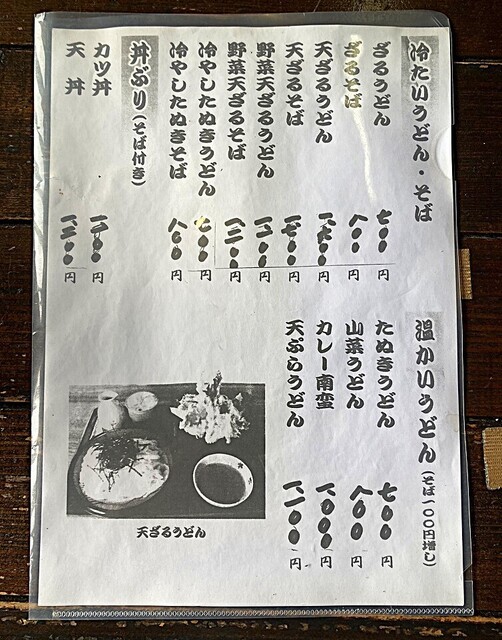 冷たいうどん・そば
ざるうどん 七〇〇円
ざるそば 八〇〇円
天ざるうどん 円
天ざるそば 円
野菜天ざるうどん 円
野菜天ざるそば 円
冷やしたぬきうどん 七〇〇円
冷やしたぬきそば 八〇〇円
丼ぶり(そば付き)
カツ丼 円
天丼 円
温かいうどん(そば一〇〇円増し)
たぬきうどん 七〇〇円
山菜うどん 八〇〇円
カレー南蛮 一、〇〇〇円
天ぷらうどん 円
天ざるうどん